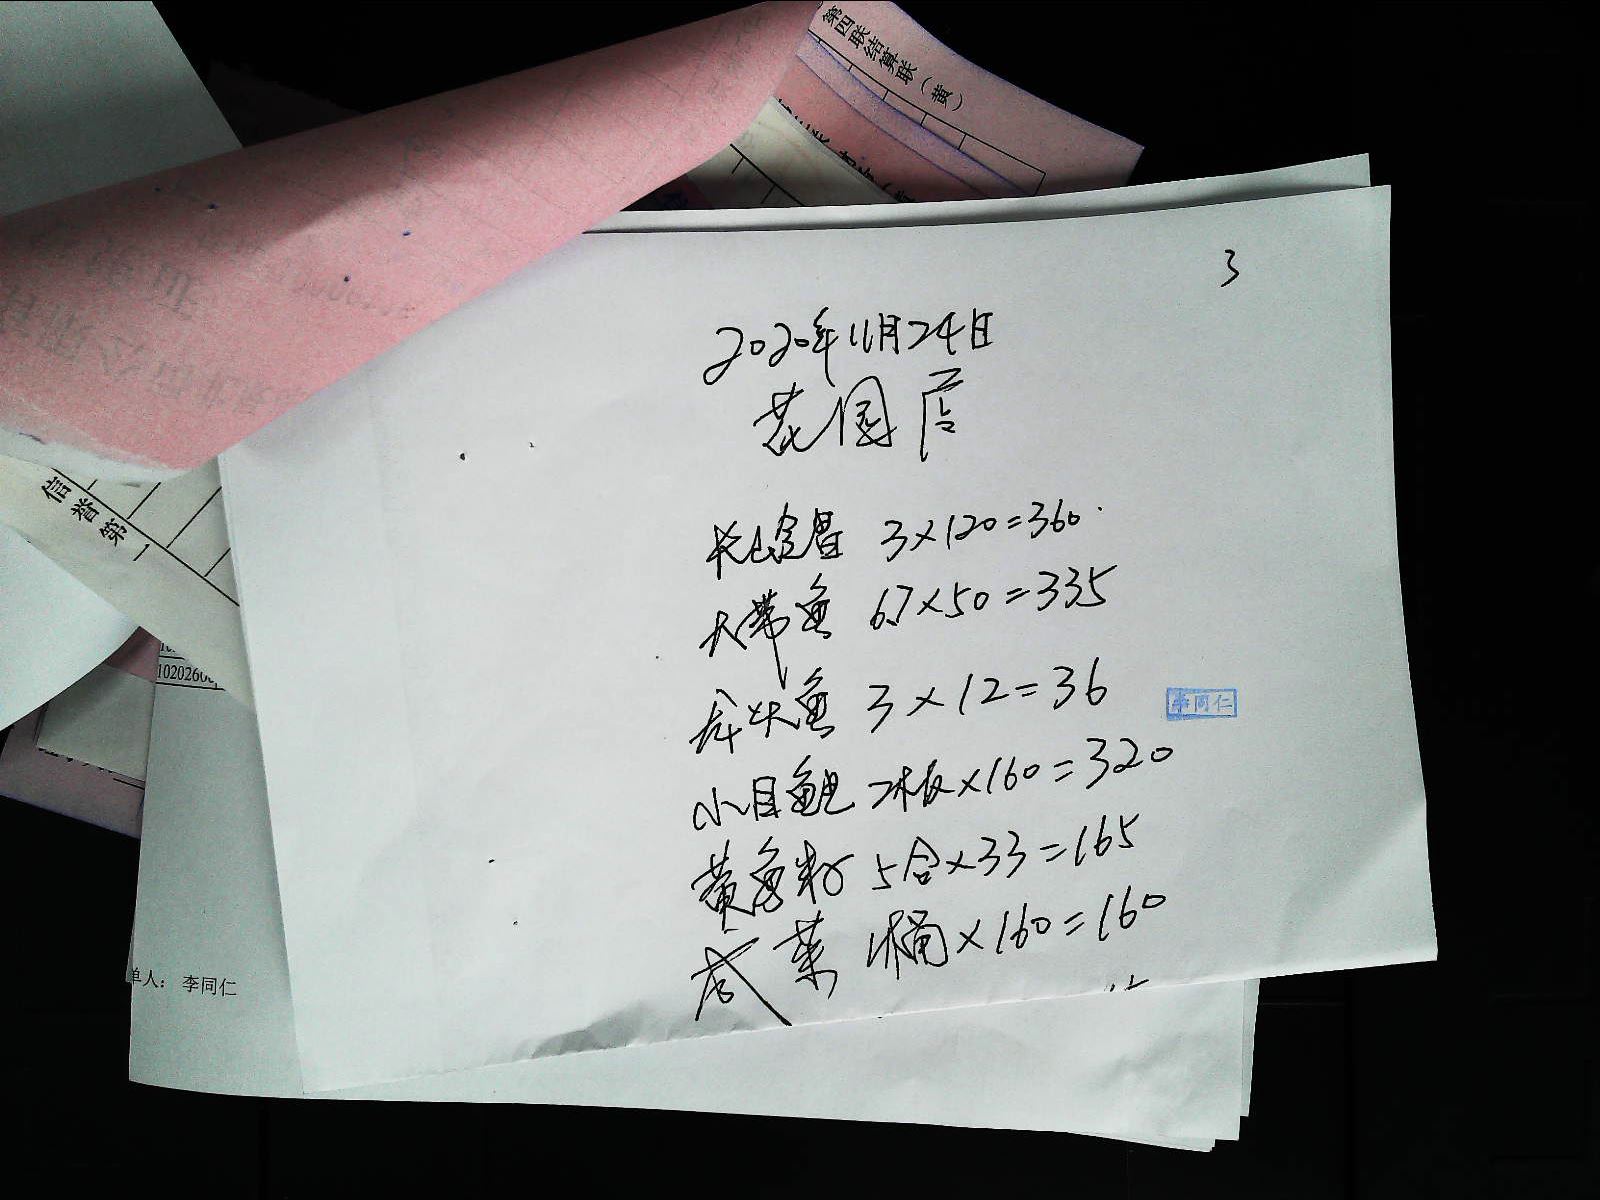 第四联结算联（黄）
3
2020年11月24日
花园店
3×120=360
大带鱼 6.7×50=335
龙头鱼 3×12=36
李同仁
小目鱼 2板×160=320
黄鱼籽 5合×33=165
咸菜 1桶×160=160
信誉第一
单人： 李同仁